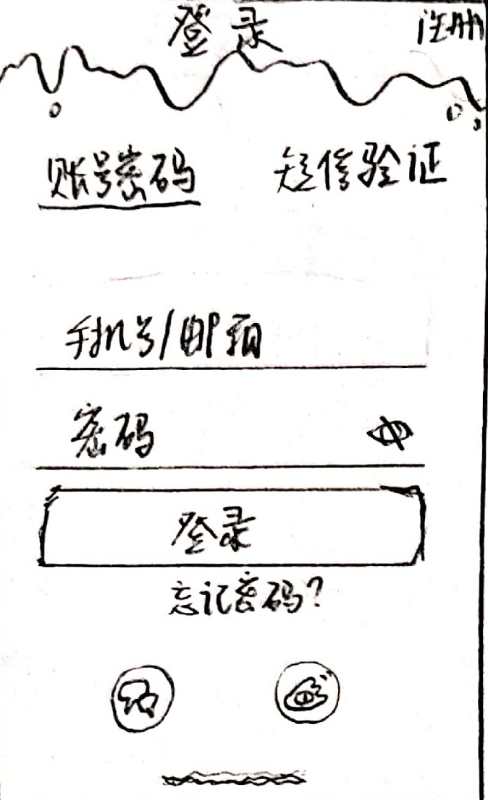 登录 注册
账号密码 短信验证
手机号/邮箱
密码
登录
忘记密码?